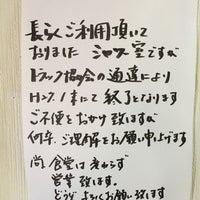 長らくご利用頂いて
おりました シャワー室ですが
トラック協会の通達により
にて終了となります
ご不便をおかけ致しますが
何卒、ご理解をお願い申し上げます
尚 食堂は変わらず
営業致します。
どうぞよろしくお願い致します